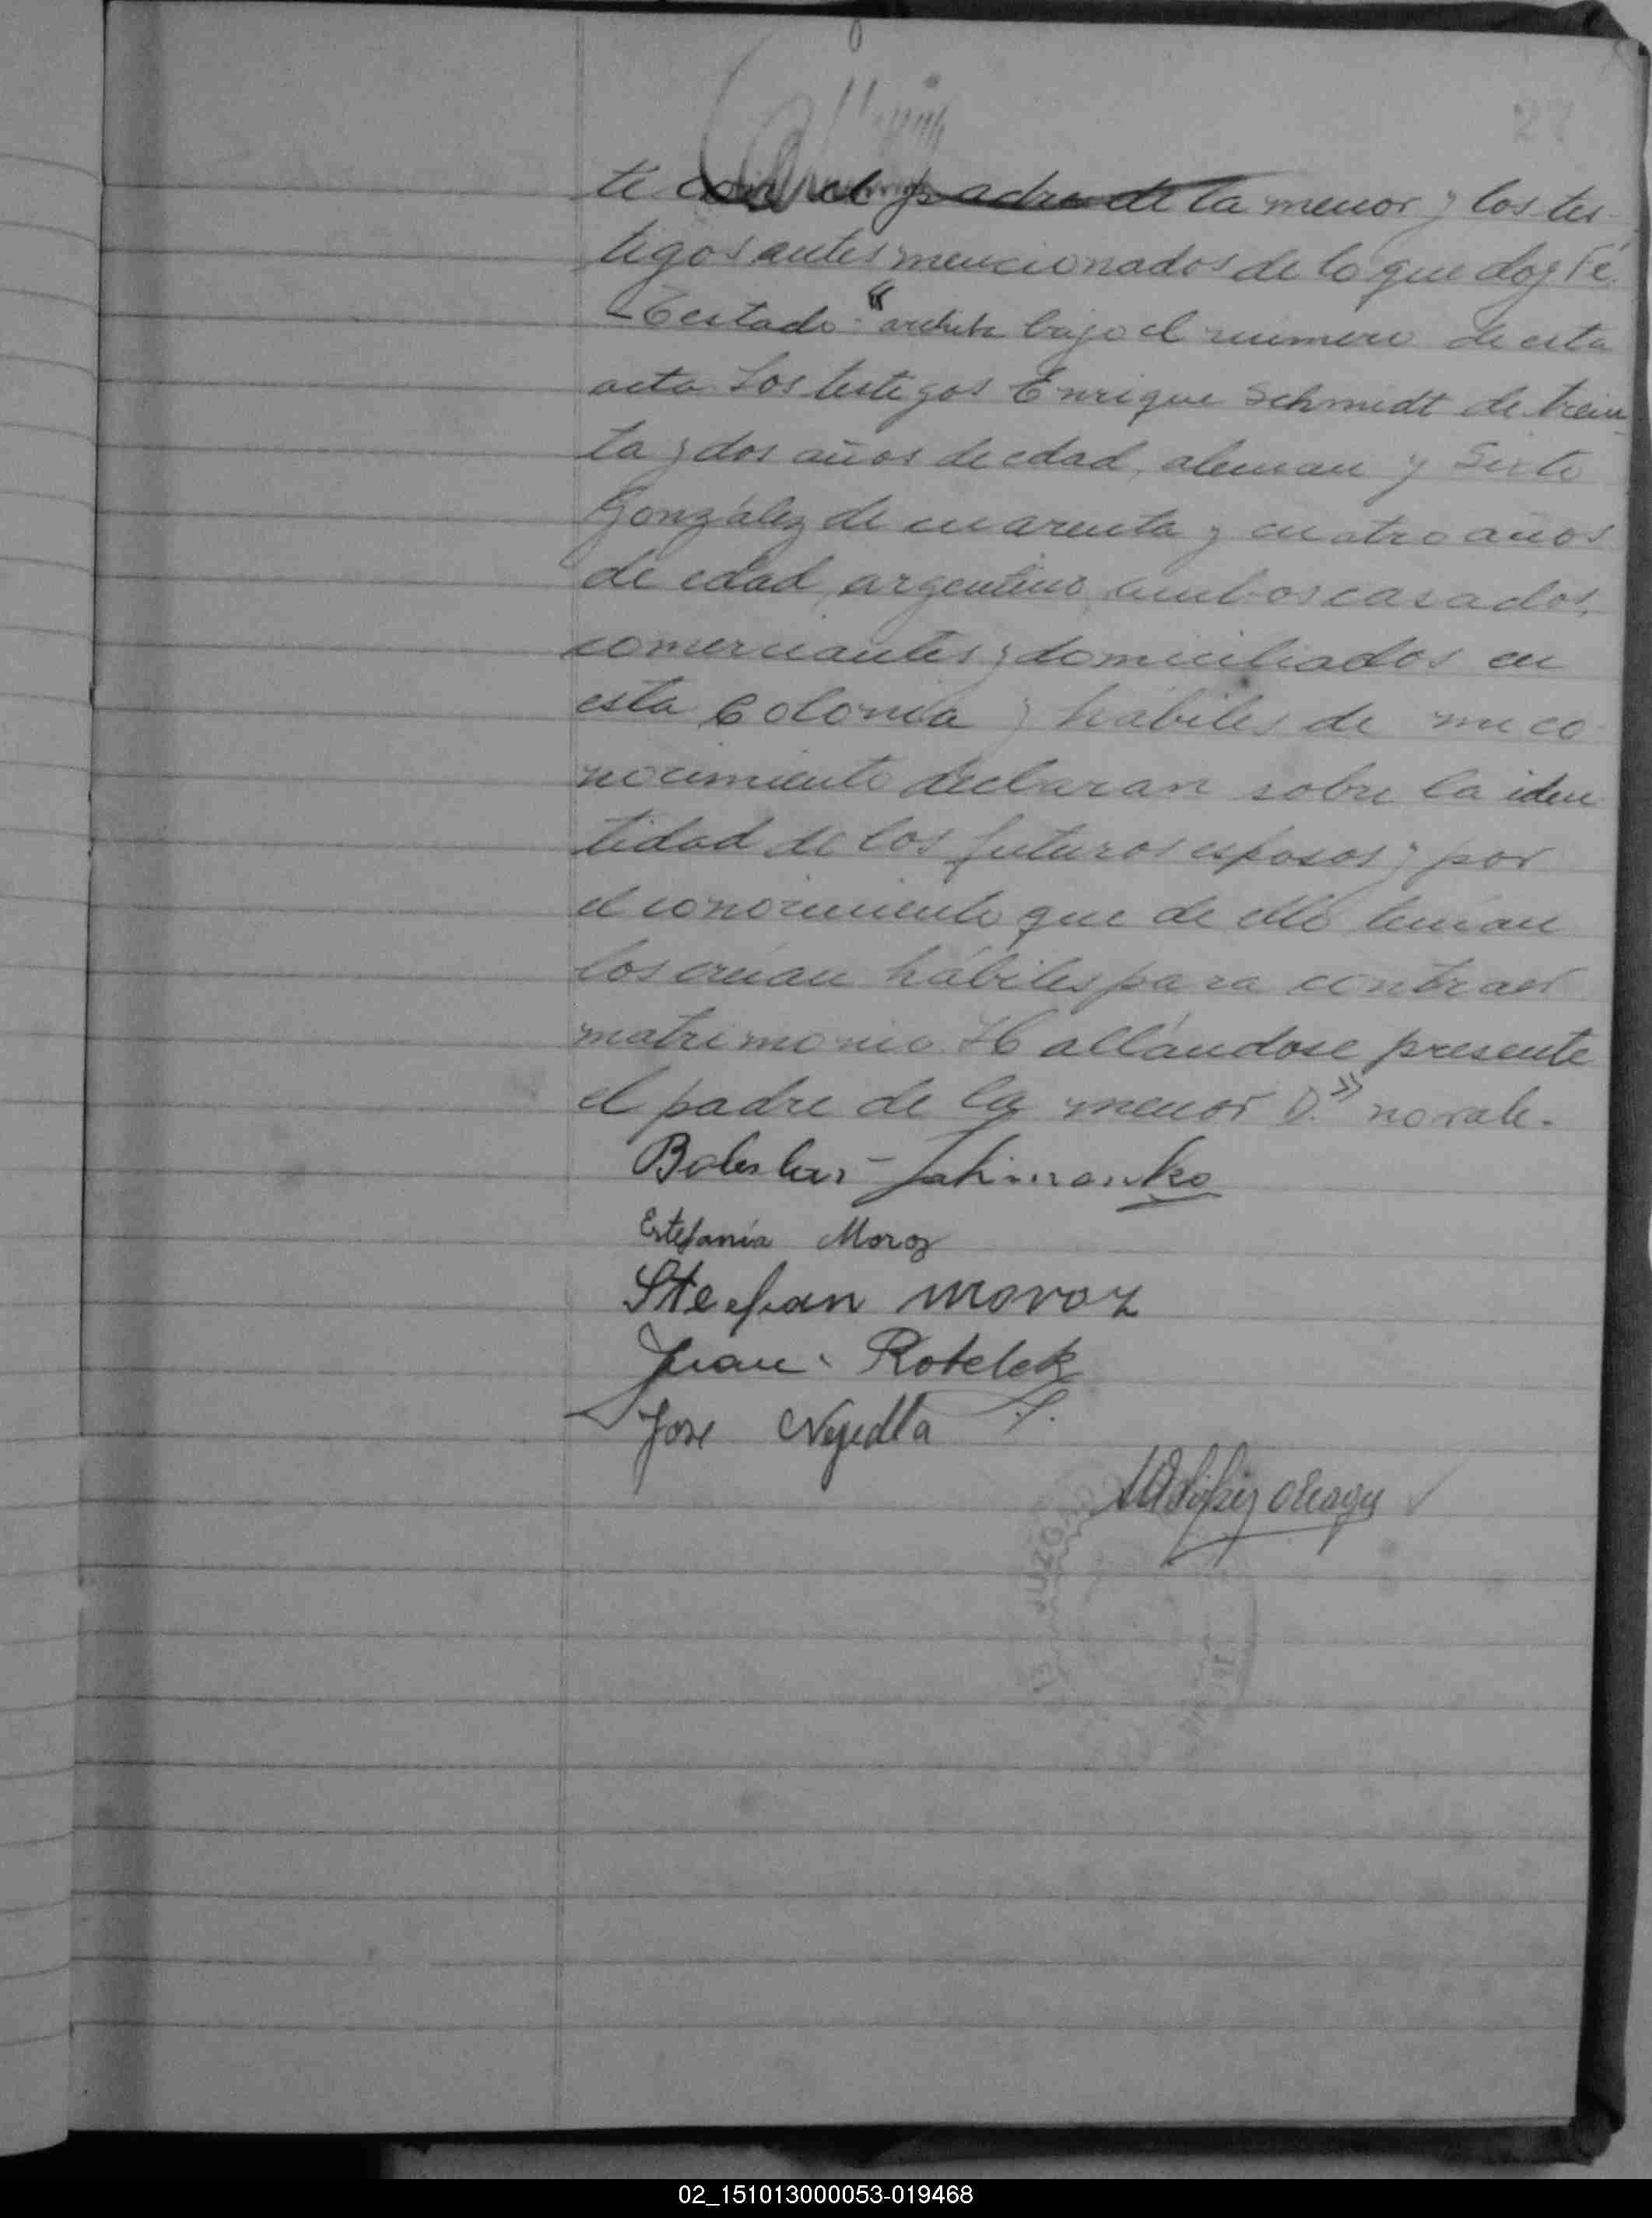 te con el padre de la menor y los tes-
tigos antes mencionados de lo que doy Fé.
Testado "archiba bajo el numero de esta
acta Los testigos Enrique Schmidt de trein
ta y dos años de edad, aleman y Sixto
González de cuarenta y cuatro años
de edad, argentino, ambos casados,
comerciantes y domiciliados en
esta Colonia y hábiles de mi co-
nocimiento declaran sobre la iden
tidad de los futuros esposos y por
el conocimiento que de ello tenian
los creian hábiles para contraer
matrimonio Hallándose presente
el padre de la menor D." no vale.
Estefanía Moroz
Stefan Moroz
Juan Rotelek
Jose Nejedla
JUZGADO
02_151013000053-019468